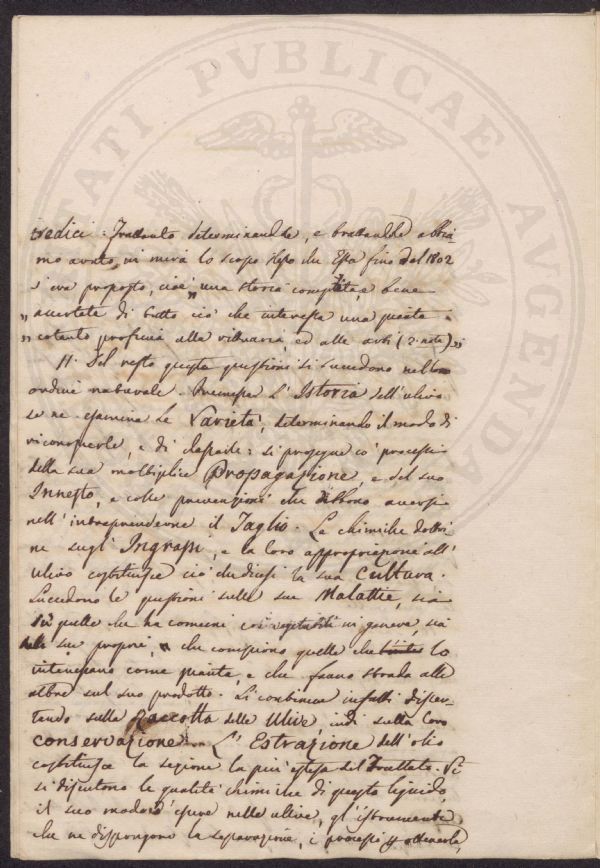 PVBLICAE AVGENDA
tredici. Trattanto determinandole, e trattandole abbia
mo avuto in mira lo scopo stesso che Essa fino dal 1802
s'era proposto, cioè „ una storia completa, e bene
„ accertata di tutto ciò che interessa una pianta
„ cotanto proficua alla ed alle arti (2. nota) „
11. Del resto queste questioni si succedono nell'
ordine naturale. Premessa l'Istoria dell'ulivo
se ne esamina le Varietà, determinando il modo di
riconoscerle, e di classarle: si prosegue co' processi
della sua moltiplice Propagazione, e del suo
Innesto, e colle prevenzioni che debbono aversi
nell'intraprenderne il Taglio. Le chimiche dottri
ne sugl'Ingrassi, e la loro appropriazione all'
ulivo costituisce ciò che dicesi la sua Cultura.
Succedono le questioni sulle sue Malattie, sia
su quelle che ha comuni coi vegetabili in genere, sia
sue proprie, che compiono quelle che lo
interessano come pianta, e che fanno strada alle
altre sul suo prodotto. Si continua infatti discu-
tendo sulla Raccolta delle Ulive, indi sulla loro
conservazione. L'Estrazione dell'olio
costituisce la sezione la più estesa del Trattato. Vi
si discutono le qualità chimiche di questo liquido,
il suo modo d'essere nelle ulive, gl'istrumenti
che ne dispongono la separazione, i processi ottenerla,